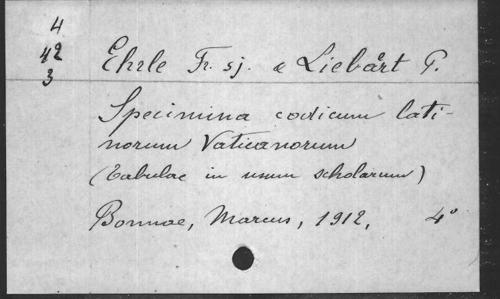 4
42
3
Ehrle Fr. sj. e Liebårt P.
Specimina codicum lati-
norum Vaticanorum
(Tabulae in usum scholarum)
Bonnae, Marcus, 1912, 4°